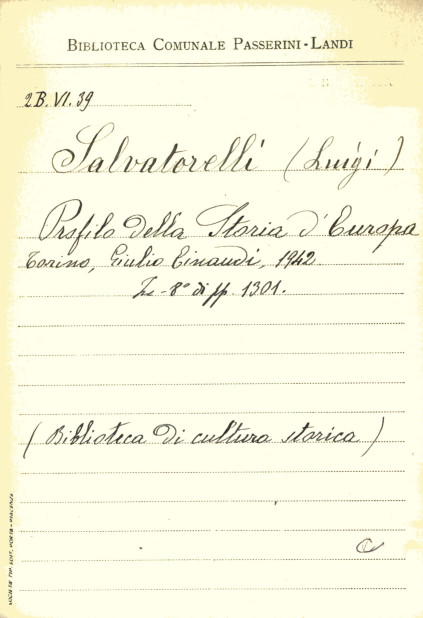 BIBLIOTECA COMUNALE PASSERINI-LANDI
2B.VI.39
Salvatorelli (Luigi)
Profilo della Storia d'Europa
Torino, Giulio Einaudi, 1942
In-8° di pp. 1301.
(Biblioteca di cultura storica)